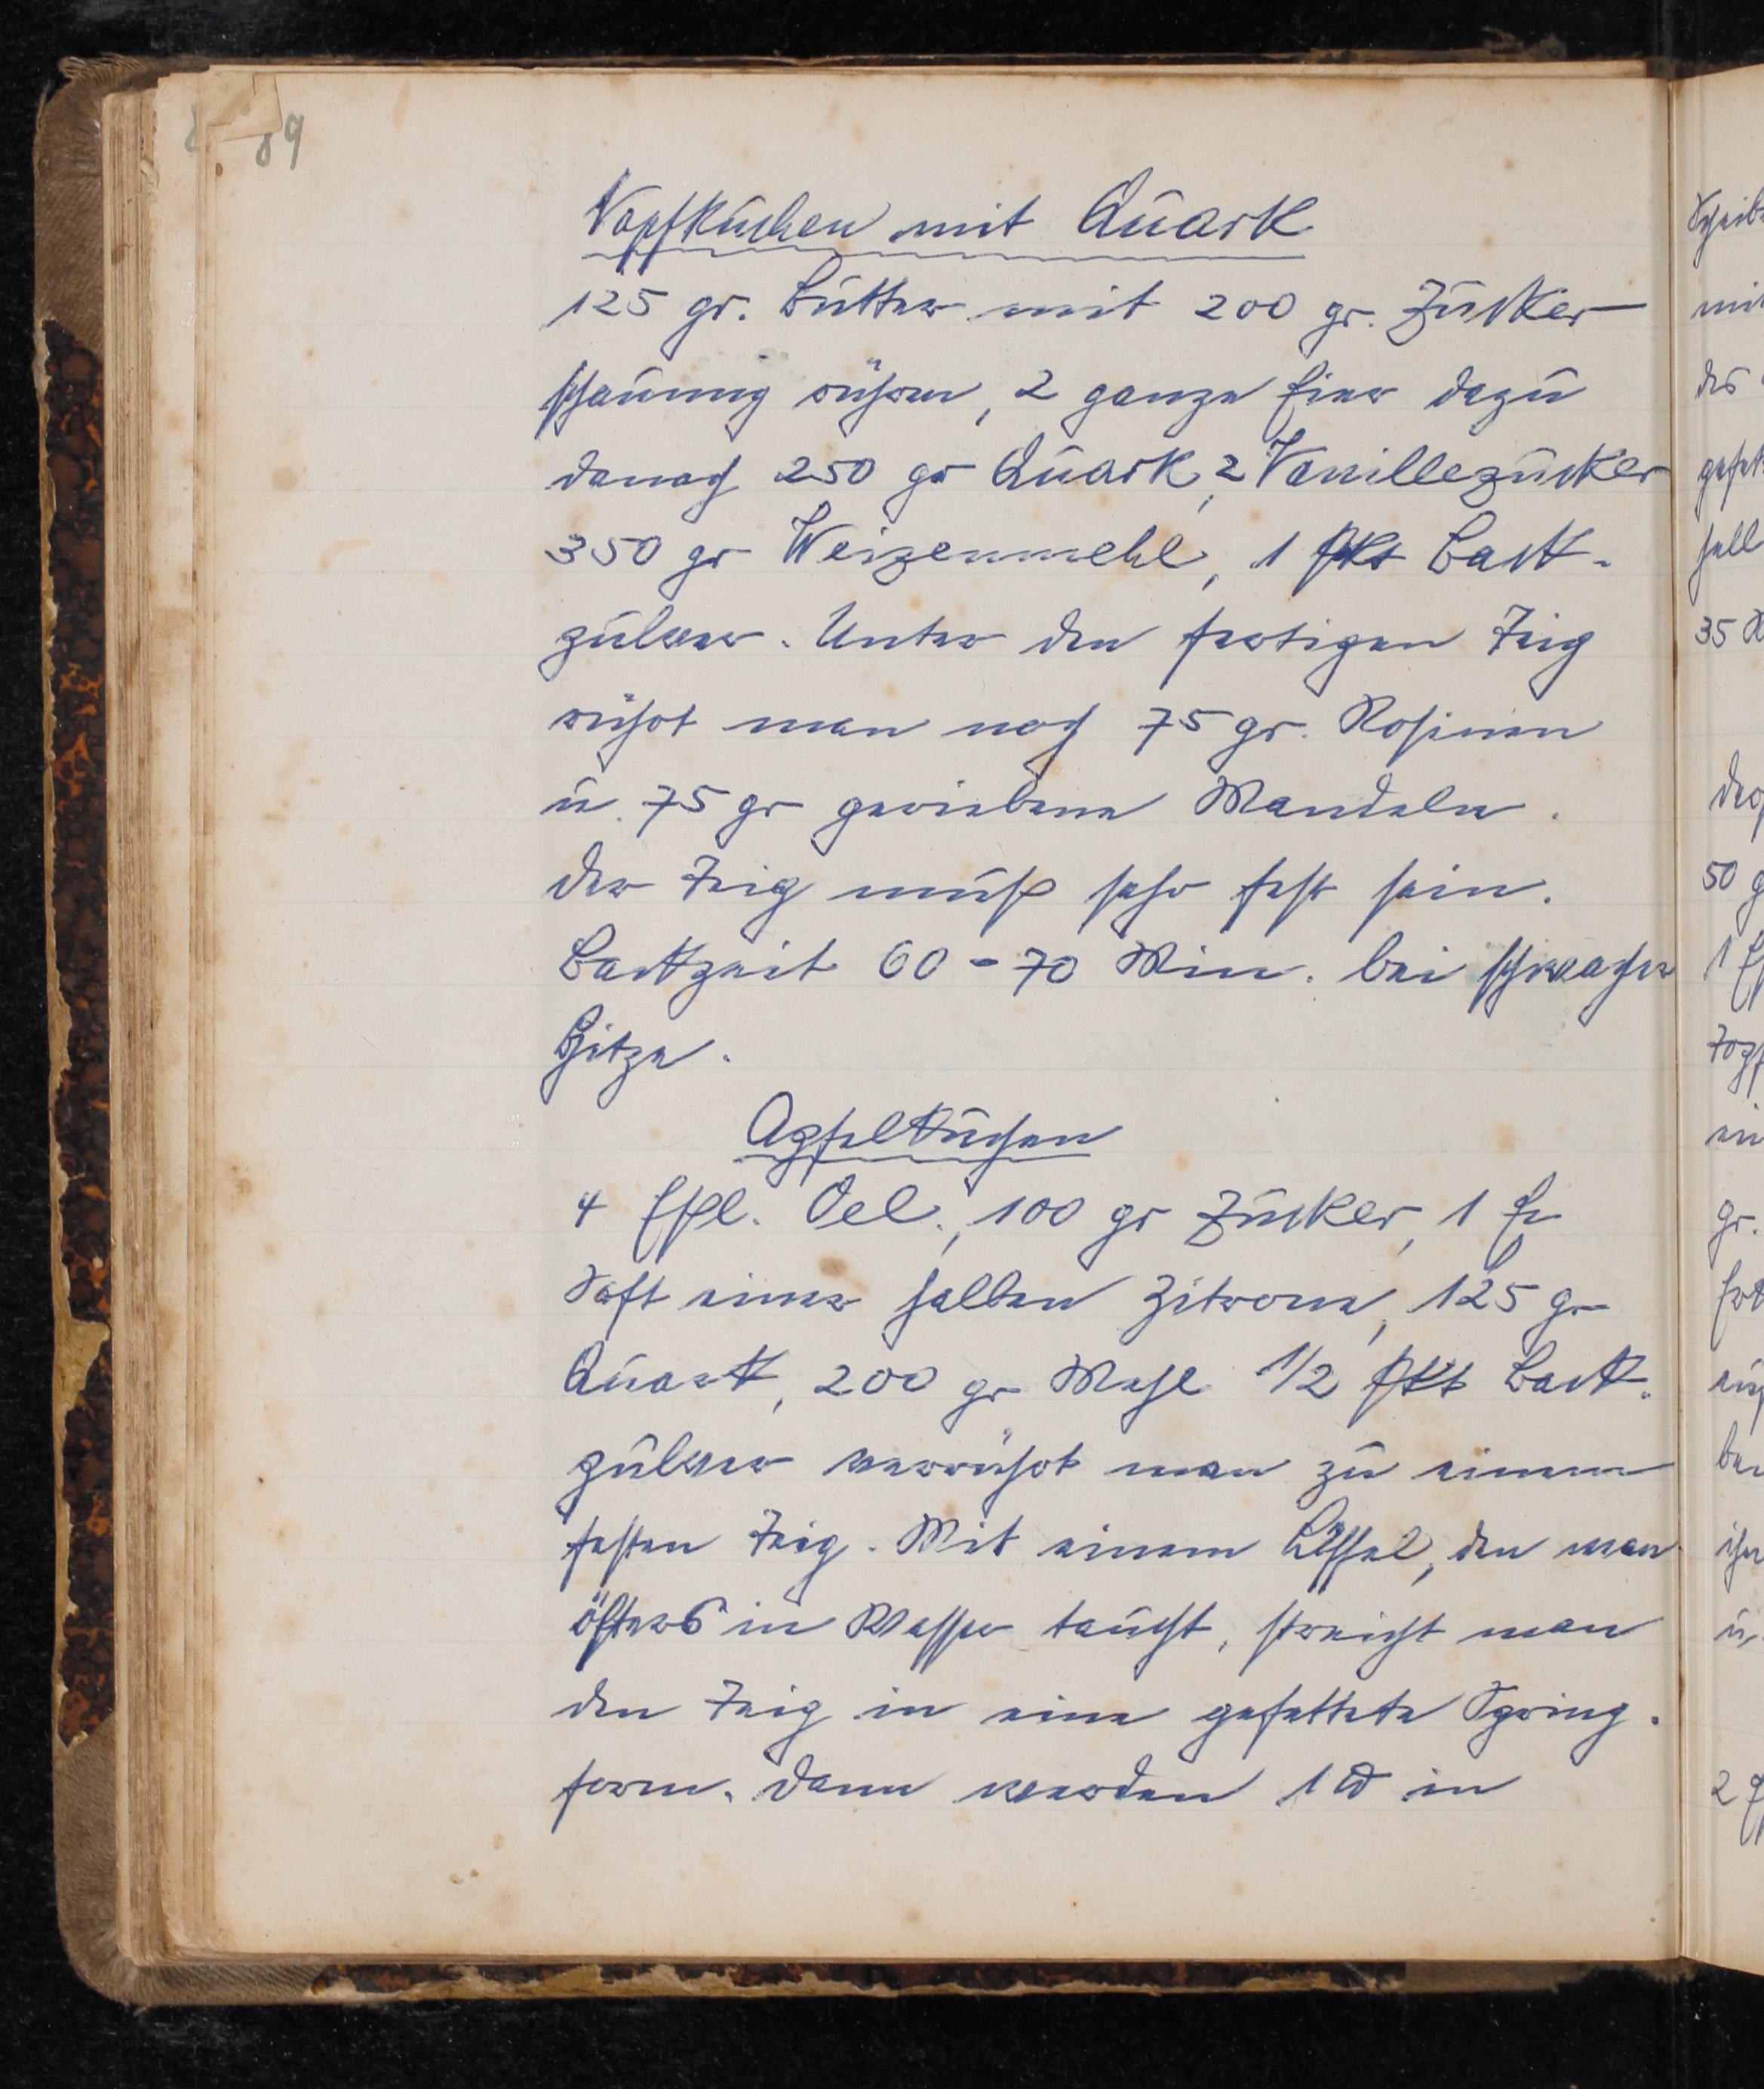 89
Napfkuchen mit Quark
125 gr. Butter mit 200 gr. Zucker
schaumig rühren, 2 ganze Eier dazu
danach 250 gr Quark, 2 Vanillezucker
350 gr Weizenmehl, 1 Pkt Back-
pulver. Unter den fertigen Teig
rührt man noch 75 gr. Rosinen
u. 75 gr geriebene Mandeln.
Der Teig muß sehr fest sein.
Backzeit 60-70 Min. bei schwacher
Hitze.
Apfelkuchen
4 Eßl. Oel, 100 gr Zucker, 1 Ei
Saft einer halben Zitrone, 125 gr
Quark, 200 gr Mehl 1/2 Pkt Back-
pulver verrührt man zu einem
festen Teig. Mit einem Löffel, den man
öfters in Wasser taucht, streicht man
den Teig in eine gefettete Spring-
form. Dann werden 1 ℔ in
mit
des
35
50
gr.
2